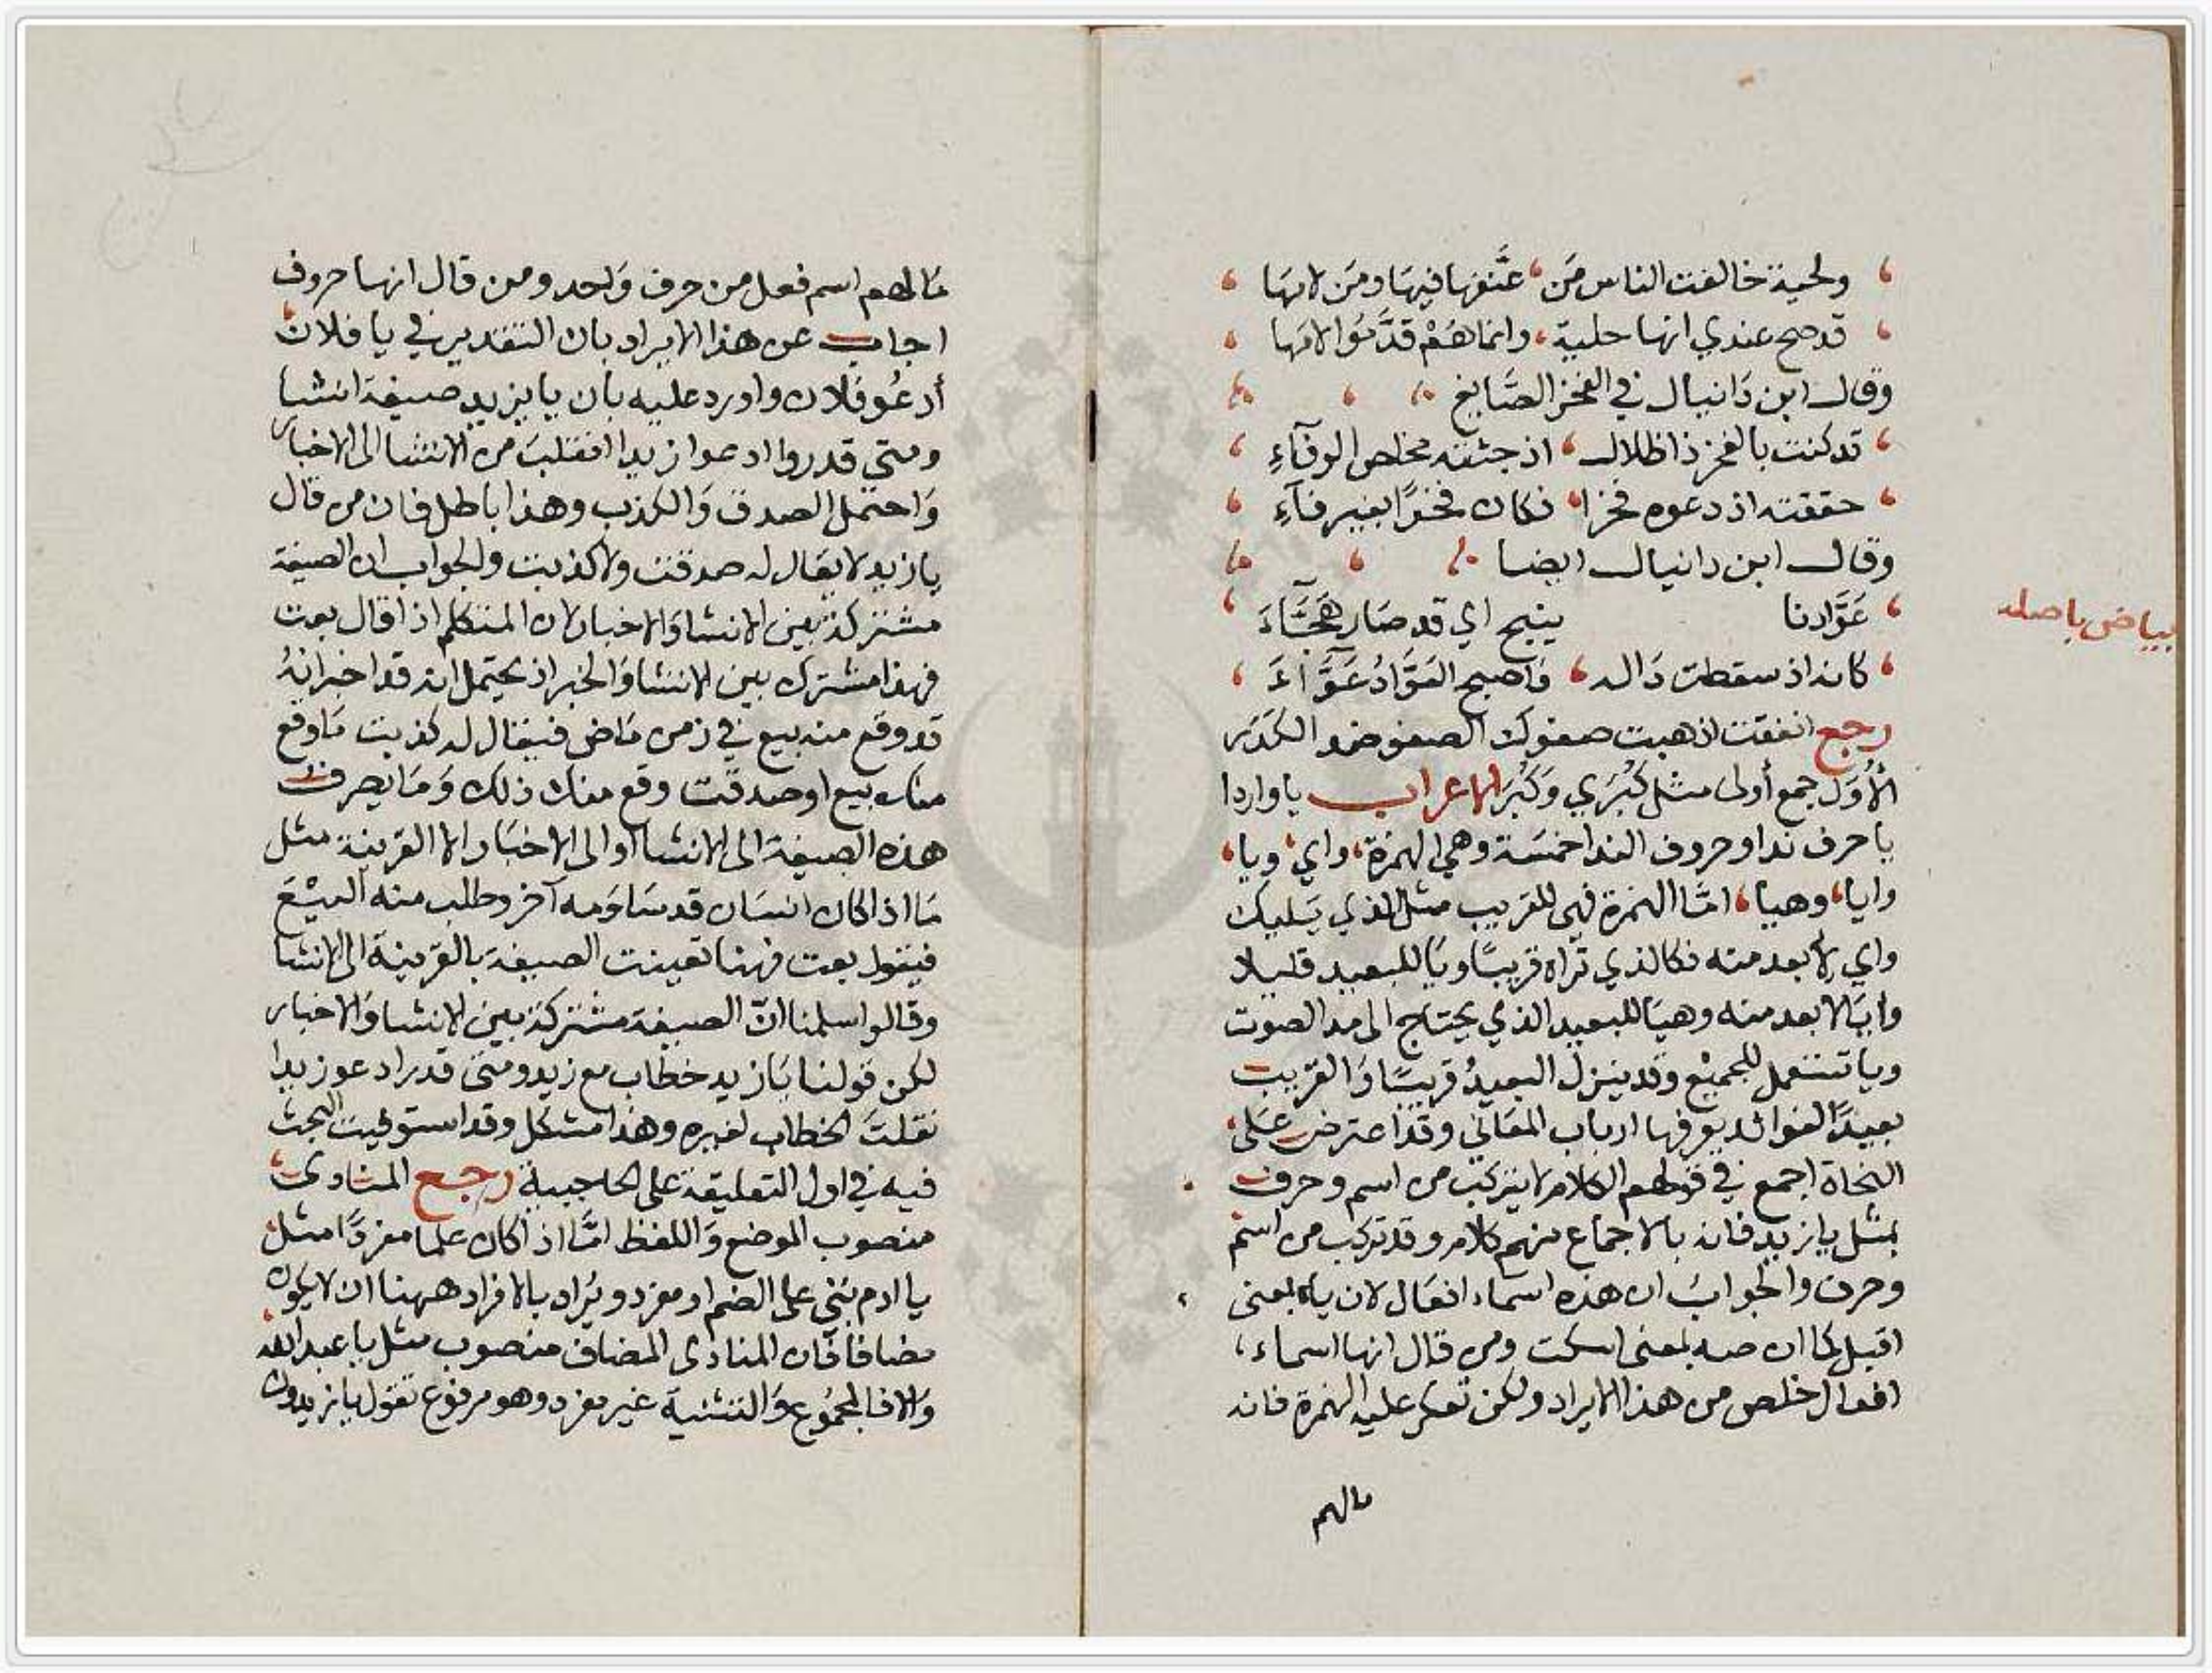 ولحية خالفت الناس من عنفها فيها ومن لامها
قد صح عندي انها حلية وانما هم قدموا لامها
وقال ابن دانيال في الفخر الصايغ
قد كنت بالفخر ذا ظلال اذ جئته مخلص الوفآءِ
حققته اذ دعوه فخرا فكان فخرًا بغير فآءِ
وقال ابن دانيال ايضا
عَوَّادنا ينبح اي قد صَار هَجَّآءَ
بياض باصله
كانه اذ سقطت دَاله وَاصبح العَوَّادُ عَوَّآءَ
رجع انفقت اذهبت صفوك الصفو ضد الكَدَر
الأُوَل جمع أولى مثل كُبْرَي وَكُبَر الاعراب ياواردا
يا حرف ندا وحروف الندا خمسَة وهي الهمزة واي ويا
وايا وهيا امَّا الهمزة فهى للقريب مثل الذي يَليك
واي لابعد منه فكالذي تَراه قريبًا ويَا للبعيد قليلا
وايَا لابعد منه وهيَا للبعيد الذي يحتاج الى مد الصوت
ويا تستعمل للجميْع وقد ينزل البعيدُ قريبًا وَالقريب
بعيدًا لفوائد يعرفها ارباب المعَاني وقد اعترض عَلى
النحاة اجمع في قولهم الكلام لا يتركب من اسم وحرف
بمثل يا زيد فانه بالاجماع منهم كلام وقد تركب من اسم
وحرف والجوابُ ان هذه اسمَاء افعَال لان يا بمعنى
اقبل كما ان صه بمعنى اسكت ومن قال انها اسماء
افعال خلص من هذا الايراد ولكن تعكر عليه الهمزة فانه
مالهم
مَا لهم اسم فعل من حرف وَاحد ومن قال انها حروف
اجاب عن هذا الايراد بان التقدير في يا فلان
أدعُو فلان واورد عليه بان يا يزيد صيغة انشا
ومتى قدروا ادعوا زيدا انقلبَت من الانشا الى الاخبار
وَاحتمل الصدق وَالكذب وهذا باطل فان من قال
يا زيد لا يقال له صدقت ولا كذبت والجواب ان الصيغة
مشتركة بَين الانشا وَالاخبار لان المتكلم اذا قال بعت
فهذا مشترك بين الانشا وَالخبر اذ يحتمل انه قد اخبر انهُ
قد وقع منه بيع في زمن مَاض فيقال له كذبت مَا وقع
منك بيع او صدقت وقع منك ذلك وَمَا يصرف
هذه الصيغة الى الانشا او الى الاخبَار الا القرينة مثل
مَا اذا كان انسَان قد سَاوَمه آخر وطلب منه البيْعَ
فيقول بعت فهنا تعينت الصيغة بالقرينة الى الانشا
وقالوا سلمنا انّ الصيغة مشتركة بين الانشا وَالاخبار
لكن قولنا يَا زيد خطاب مع زيد ومتى قدر ادعو زيدا
نقلتَ الخطاب لغيره وهذا مشكل وقد استوفيت البحث
فيه في اول التعليقة على الحاجبية رجع المنادى
منصوب الموضع وَاللفظ امَّا اذا كان علما مفردًا مثل
يا ادم بني على الضم او مفرد ويُراد بالافراد ههنا ان لا يكون
مضافا فان المنادى المضاف منصوب مثل يا عبد الله
وَالا فالمجموع وَالتثنية غير مفرد وهو مرفوع تقول يا زيدون